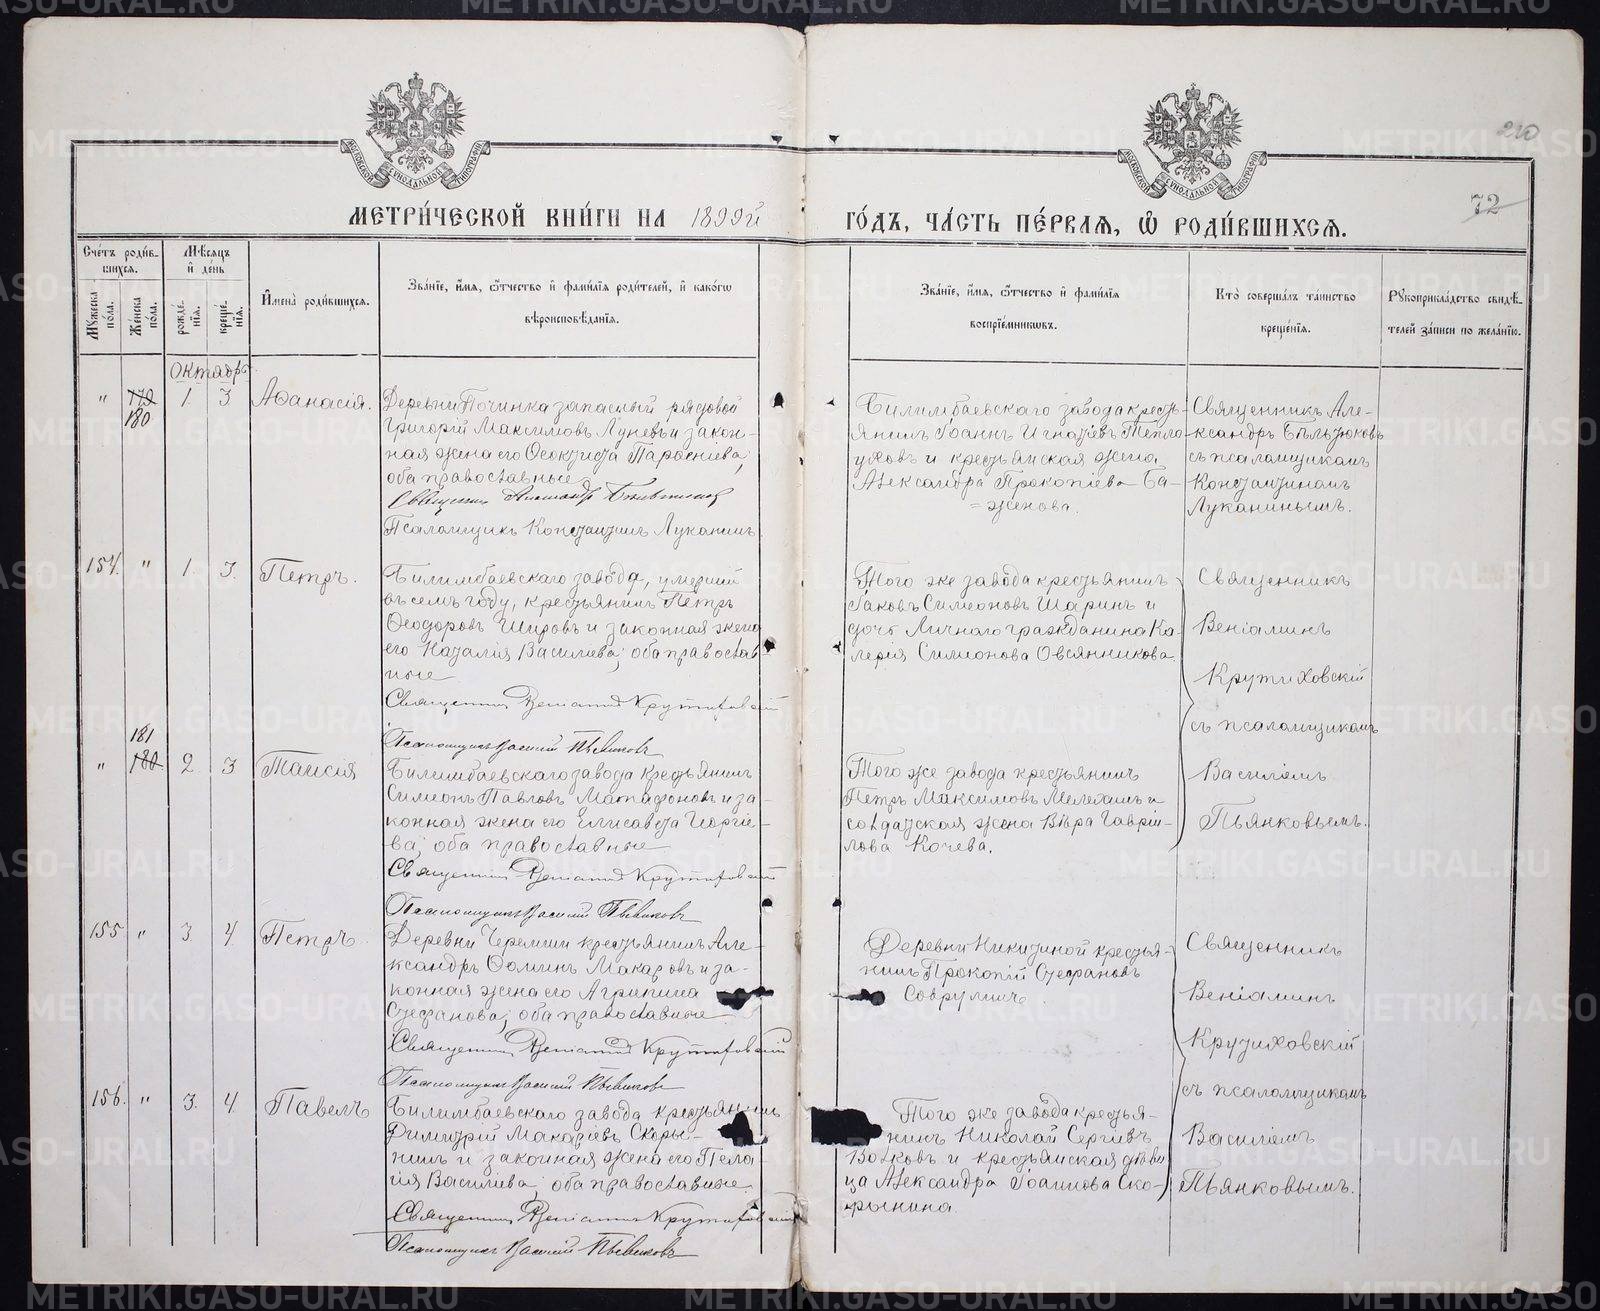 210
72
МЕТРИ́ЧЕСКОЙ КНИ́ГИ НА 1899й ГО́ДЪ, ЧА́СТЬ ПЕ́РВАЯ, Ѡ РОДИ́ВШИХСЯ.
Сче́тъ роди́в-
шихся.
Му́жеска по́ла.
Же́нска по́ла.
Мѣ́сяцъ
и де́нь
рожде́-
нія.
креще́-
нія.
И҆мена̀ роди́вшихся.
Зва́нїе, и҆́мя, ѻ҆́тчество и҆ фами́лїя роди́телей, и҆ како́гѡ
вѣроисповѣ́данїя.
Зва́нїе, и҆́мя, ѻ҆́тчество и҆ фами́лїя
воспрїе́мниковъ.
Кто̀ соверша́лъ та́инство
креще́нїя.
Рꙋкоприкла́дство свидѣ́-
телей за́писи по жела́нїю.
Октябрь
" 179 180 1. 3 Аѳанасія.
Деревни Починка запасный рядовой
Григорій Максимовъ Луневъ и закон-
ная жена его Ѳеоктиста Парѳениева;
оба православные
Священникъ Александръ
Псаломщикъ Константинъ Луканинъ
Билимбаевскаго завода кресть-
янинъ Іоаннъ Игнатіевъ Тепло-
уховъ и крестьянская жена
Александра Прокопіева Ба-
=женова.
Священникъ Але-
ксандръ Бѣльтюковъ
съ псаломщикомъ
Константиномъ
Луканинымъ.
154. " 1. 3. Петръ.
Билимбаевскаго завода, умерший
въ семъ году, крестьянинъ Петръ
Ѳеодоровъ Шировъ и законная жена
его Наталія Василиева; оба православ-
ные
Священникъ Веніаминъ Крутиховскій
Псаломщикъ Василій Пьянковъ
Того же завода крестьянинъ
Іаковъ Симеоновъ Шаринъ и
дочь Личнаго гражданина Ка-
лерія Симеонова Овсянникова.
Священникъ
Веніаминъ
Крутиховскій
съ псаломщикомъ
Василіемъ
Пьянковымъ.
" 181 180 2. 3 Таисія
Билимбаевскаго завода крестьянинъ
Симеонъ Павловъ Матафоновъ и за-
конная жена его Елисавета Георгіе-
ва; оба православные
Священникъ Веніаминъ Крутиховскій
Псаломщикъ Василій Пьянковъ
Того же завода крестьянинъ
Петръ Максимовъ Мелехинъ и
солдатская жена Вѣра Гаврии-
лова Кочева.
155 " 3. 4. Петръ.
Деревни Черемши крестьянинъ Але-
ксандръ Ѳоминъ Макаровъ и за-
конная жена его Агрипина
Стефанова; оба православные
Священникъ Веніаминъ Крутиховскій
Псаломщикъ Василій Пьянковъ
Деревни Никитиной крестья-
нинъ Прокопій Стефановъ
Священникъ
Веніаминъ
Крутиховскій
съ псаломщикомъ
Василіемъ
Пьянковымъ.
156. " 3. 4. Павелъ
Билимбаевскаго завода крестьянинъ
Димитрій Макаріевъ Скоры-
нинъ и законная жена его Пела-
гія Василиева; оба православные.
Священникъ Веніаминъ Крутиховскій
Псаломщикъ Василій Пьянковъ
Того же завода крестья-
нинъ Николай Сергіевъ
Волковъ и крестьянская дѣви-
ца Александра Іоаннова Ско-
рынина.